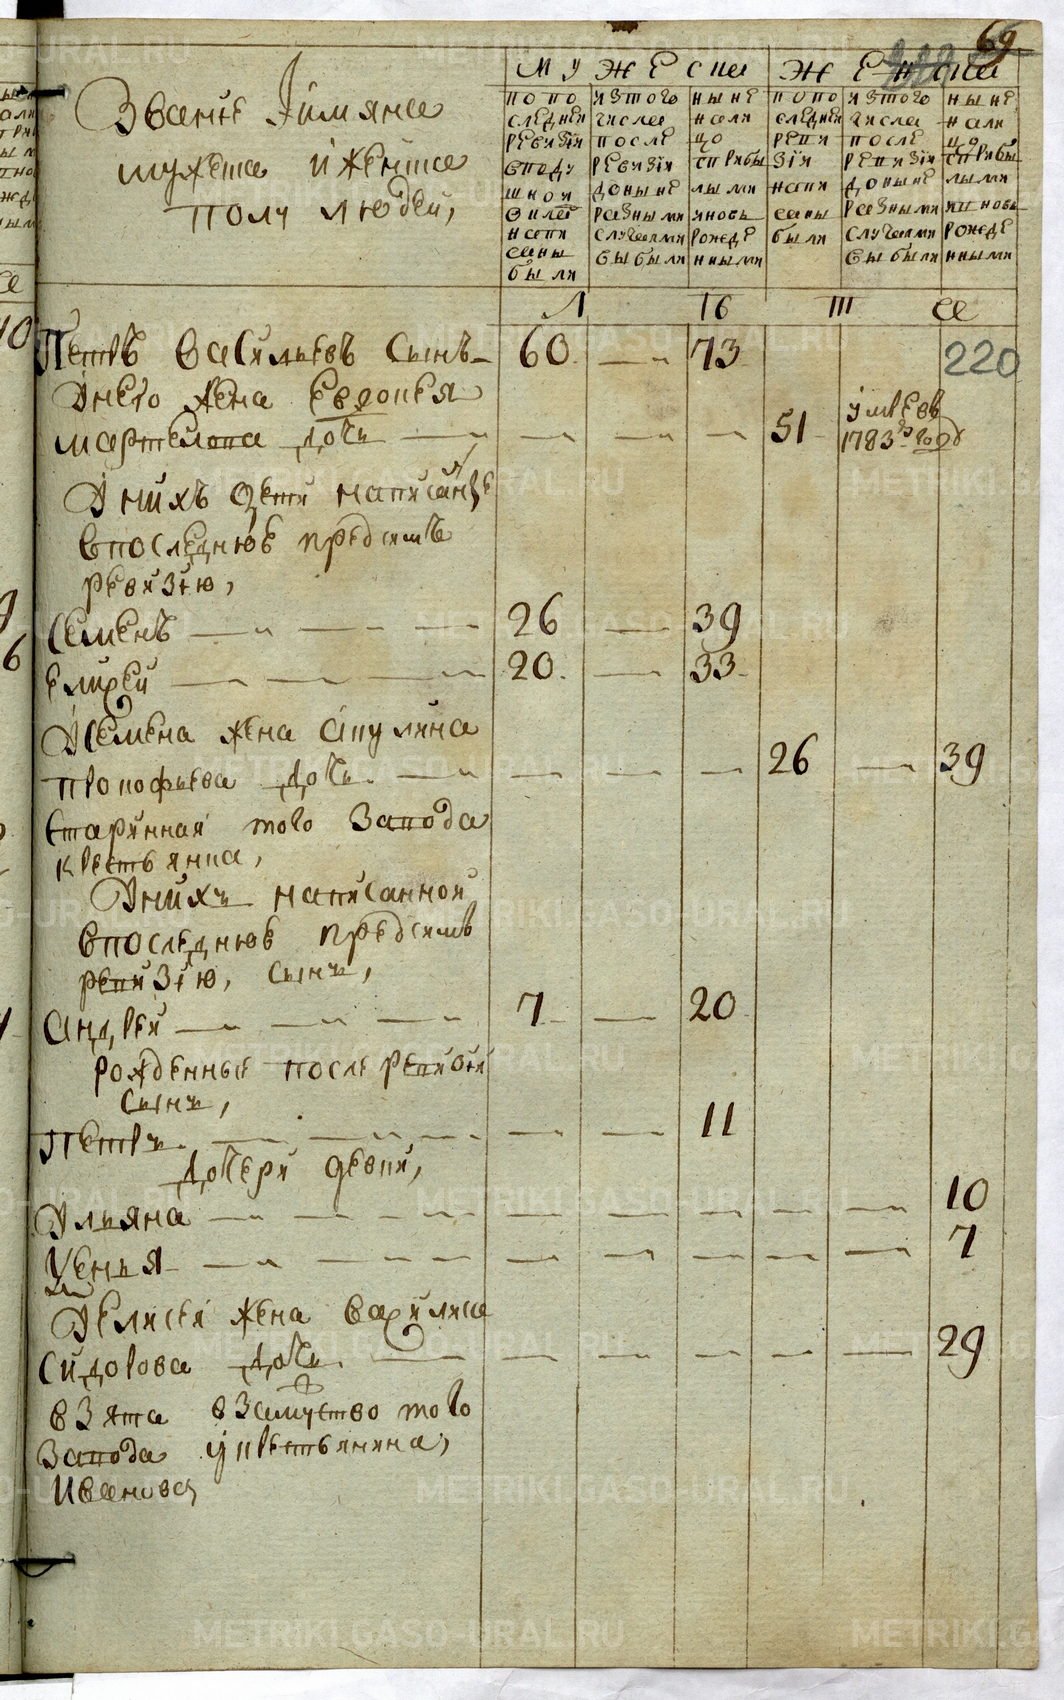 69
Званїе Їимяна
мужеска и женска
полу людей,
МУЖЕСКА ЖЕНСКА
по последней ревизїи в подушной окладе написаны были
из того числа после ревизїи до ныне разными случаями выбыли
ныне на лицо с прибылыми и вновь рожденными
по последней ревизїи написаны были
из того числа после ревизїи до ныне разными случаями выбыли
ныне на лицо с прибылыми и вновь рожденными
220
Петръ Васильевъ сынъ 60 73
У него жена Евдокея
дочь 51 умре в 1783 году
У нихъ дети написан
в последнюю пред симъ
ревизїю,
Семенъ 26 39
Елисей 20 33
У Семена жена Акулина
Прокофьева дочь 26 39
старинная того завода
крестьянка,
У нихъ написанной
в последнюю пред симъ
ревизїю, сынъ,
Андрей 7 20
рожденные после ревизїи
сынъ,
Петръ 11
дочери девки,
Ульяна 10
Ксенья 7
У Елисея жена Василиса
Сидорова дочь 29
взята в замужство того
завода у крестьянина,
Иванова,
METRIKI.GASO-URAL.RU